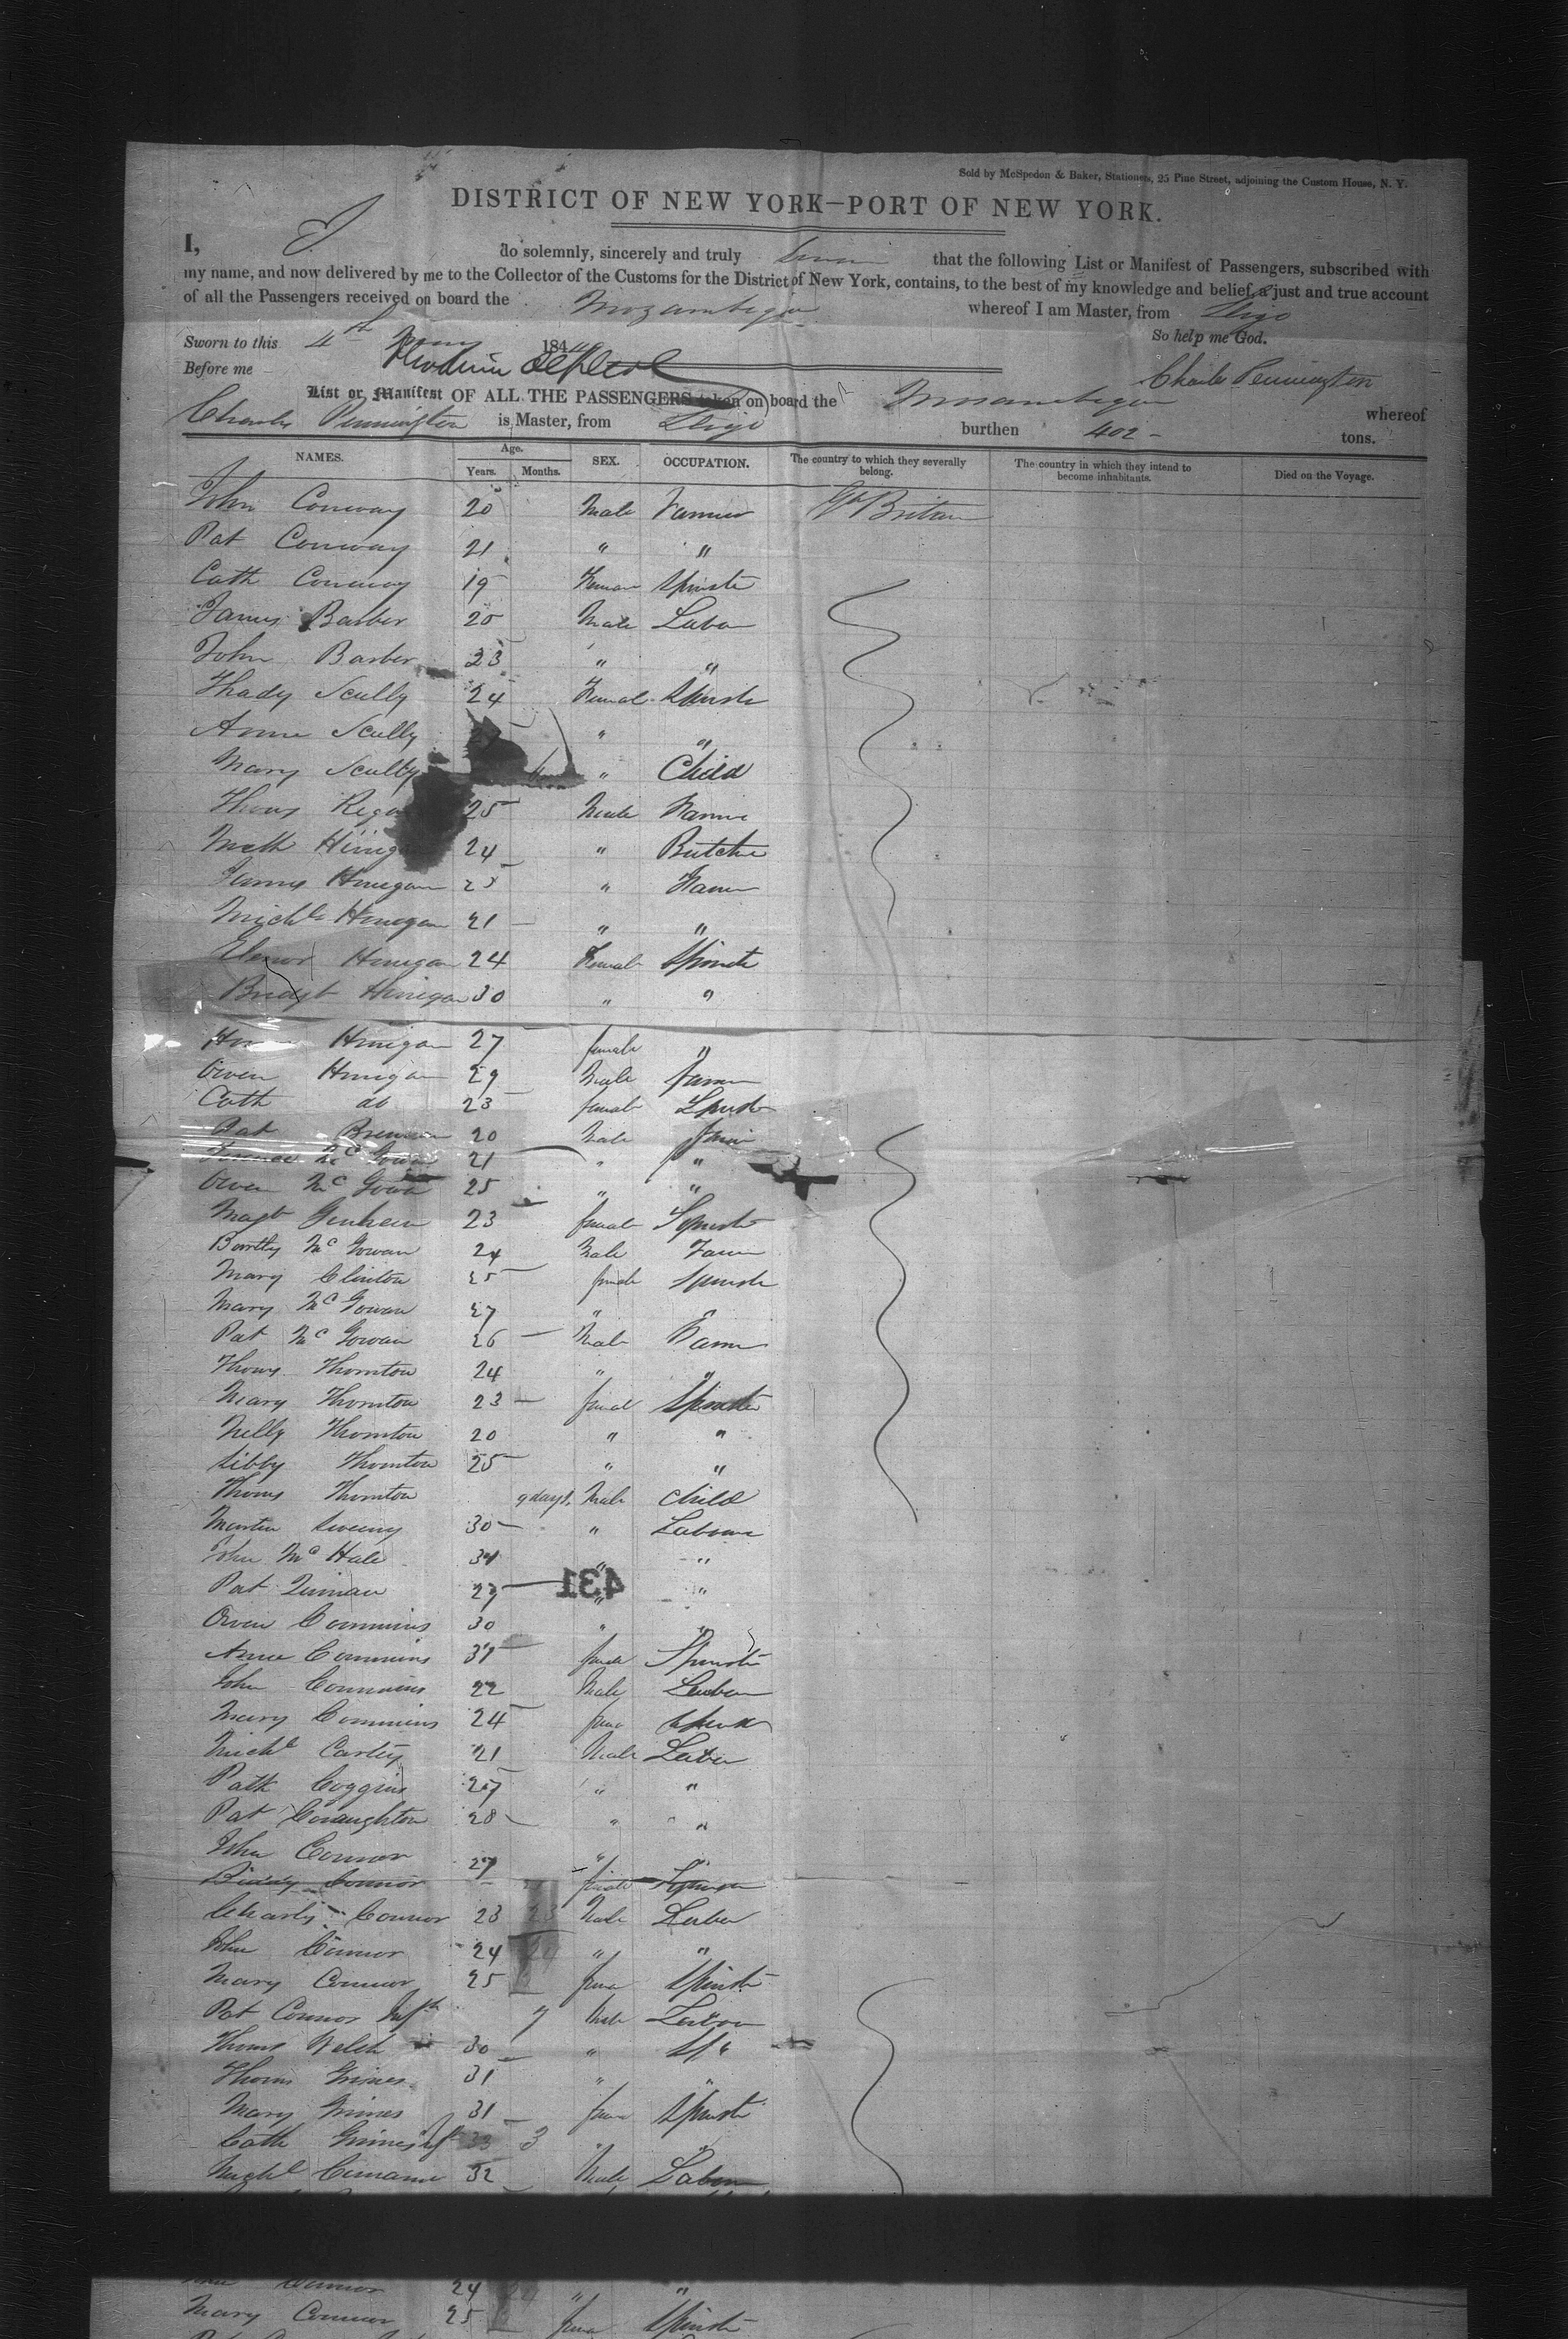 Sold by McSpedon & Baker, Stationers, 25 Pine Street, adjoining the Custom House, N. Y.
DISTRICT OF NEW YORK—PORT OF NEW YORK.
I, do solemnly, sincerely and truly that the following List or Manifest of Passengers, subscribed with
my name, and now delivered by me to the Collector of the Customs for the District of New York, contains, to the best of my knowledge and belief, a just and true account
of all the Passengers received on board the whereof I am Master, from Sligo
Sworn to this 4th 184 So help me God.
Before me Charles Pennington
List or Manifest OF ALL THE PASSENGERS taken on board the whereof
Charles Pennington is Master, from Sligo burthen 402 - tons.
NAMES. Age. Years. Months. SEX. OCCUPATION. The country to which they severally belong. The country in which they intend to become inhabitants. Died on the Voyage.
John Conway 20 Male Farmer Gt Britain
Pat Conway 21 " "
Cath Conway 19 Spinster
James Barber 20 Male Labor
John Barber 23 " "
Thady Scully 24 Female Spinster
Anne Scully " "
Mary Scully " Child
Thos 25 Male Farmer
24 " Butcher
James Hinigan 25 " Farmer
Michl Hinigan 21 " "
Elenor Hinigan 24 Female Spinster
Bridgt Hinigan 30 " "
Hinigan 27 female "
Owen Hinigan 29 Male Farmer
Cath do 23 female Spinster
Pat Brennan 20 Male
McGowan 21 " "
Owen McGowan 25 " "
Magt 23 female Spinster
Bartly McGowan 24 Male Farmer
Mary Clinton 25 female Spinster
Mary McGowan 27 " "
Pat McGowan 26 Male Farmer
Thoms Thornton 24 " "
Mary Thornton 23 female Spinster
Nelly Thornton 20 " "
Sibby Thornton 25 " "
Thoms Thornton 9 days Male Child
Martin Sweeny 30 " Labourer
John McHale 31 " "
Pat 27 " "
431
Owen Commins 30 " "
Anne Commins 31 female Spinster
John Commins 22 Male Labor
Mary Commins 24
Michl Cartey 21 Male Labor
Patk Coggins 27 " "
Pat Conaughton 28 " "
John Connor 27 " "
Biddy Connor female
Charly Connor 23 Male Labor
John Connor 24 " "
Mary Connor 25 Spinster
Pat Connor Inft 7 Male Labor
Thoms Welsh 30 "
Thoms Grimes 31 " "
Mary Grimes 31 Spinster
Cath Grimes Inft 3 " "
32 Male Labor
Connor 24 " "
Mary Connor 25 Spinster